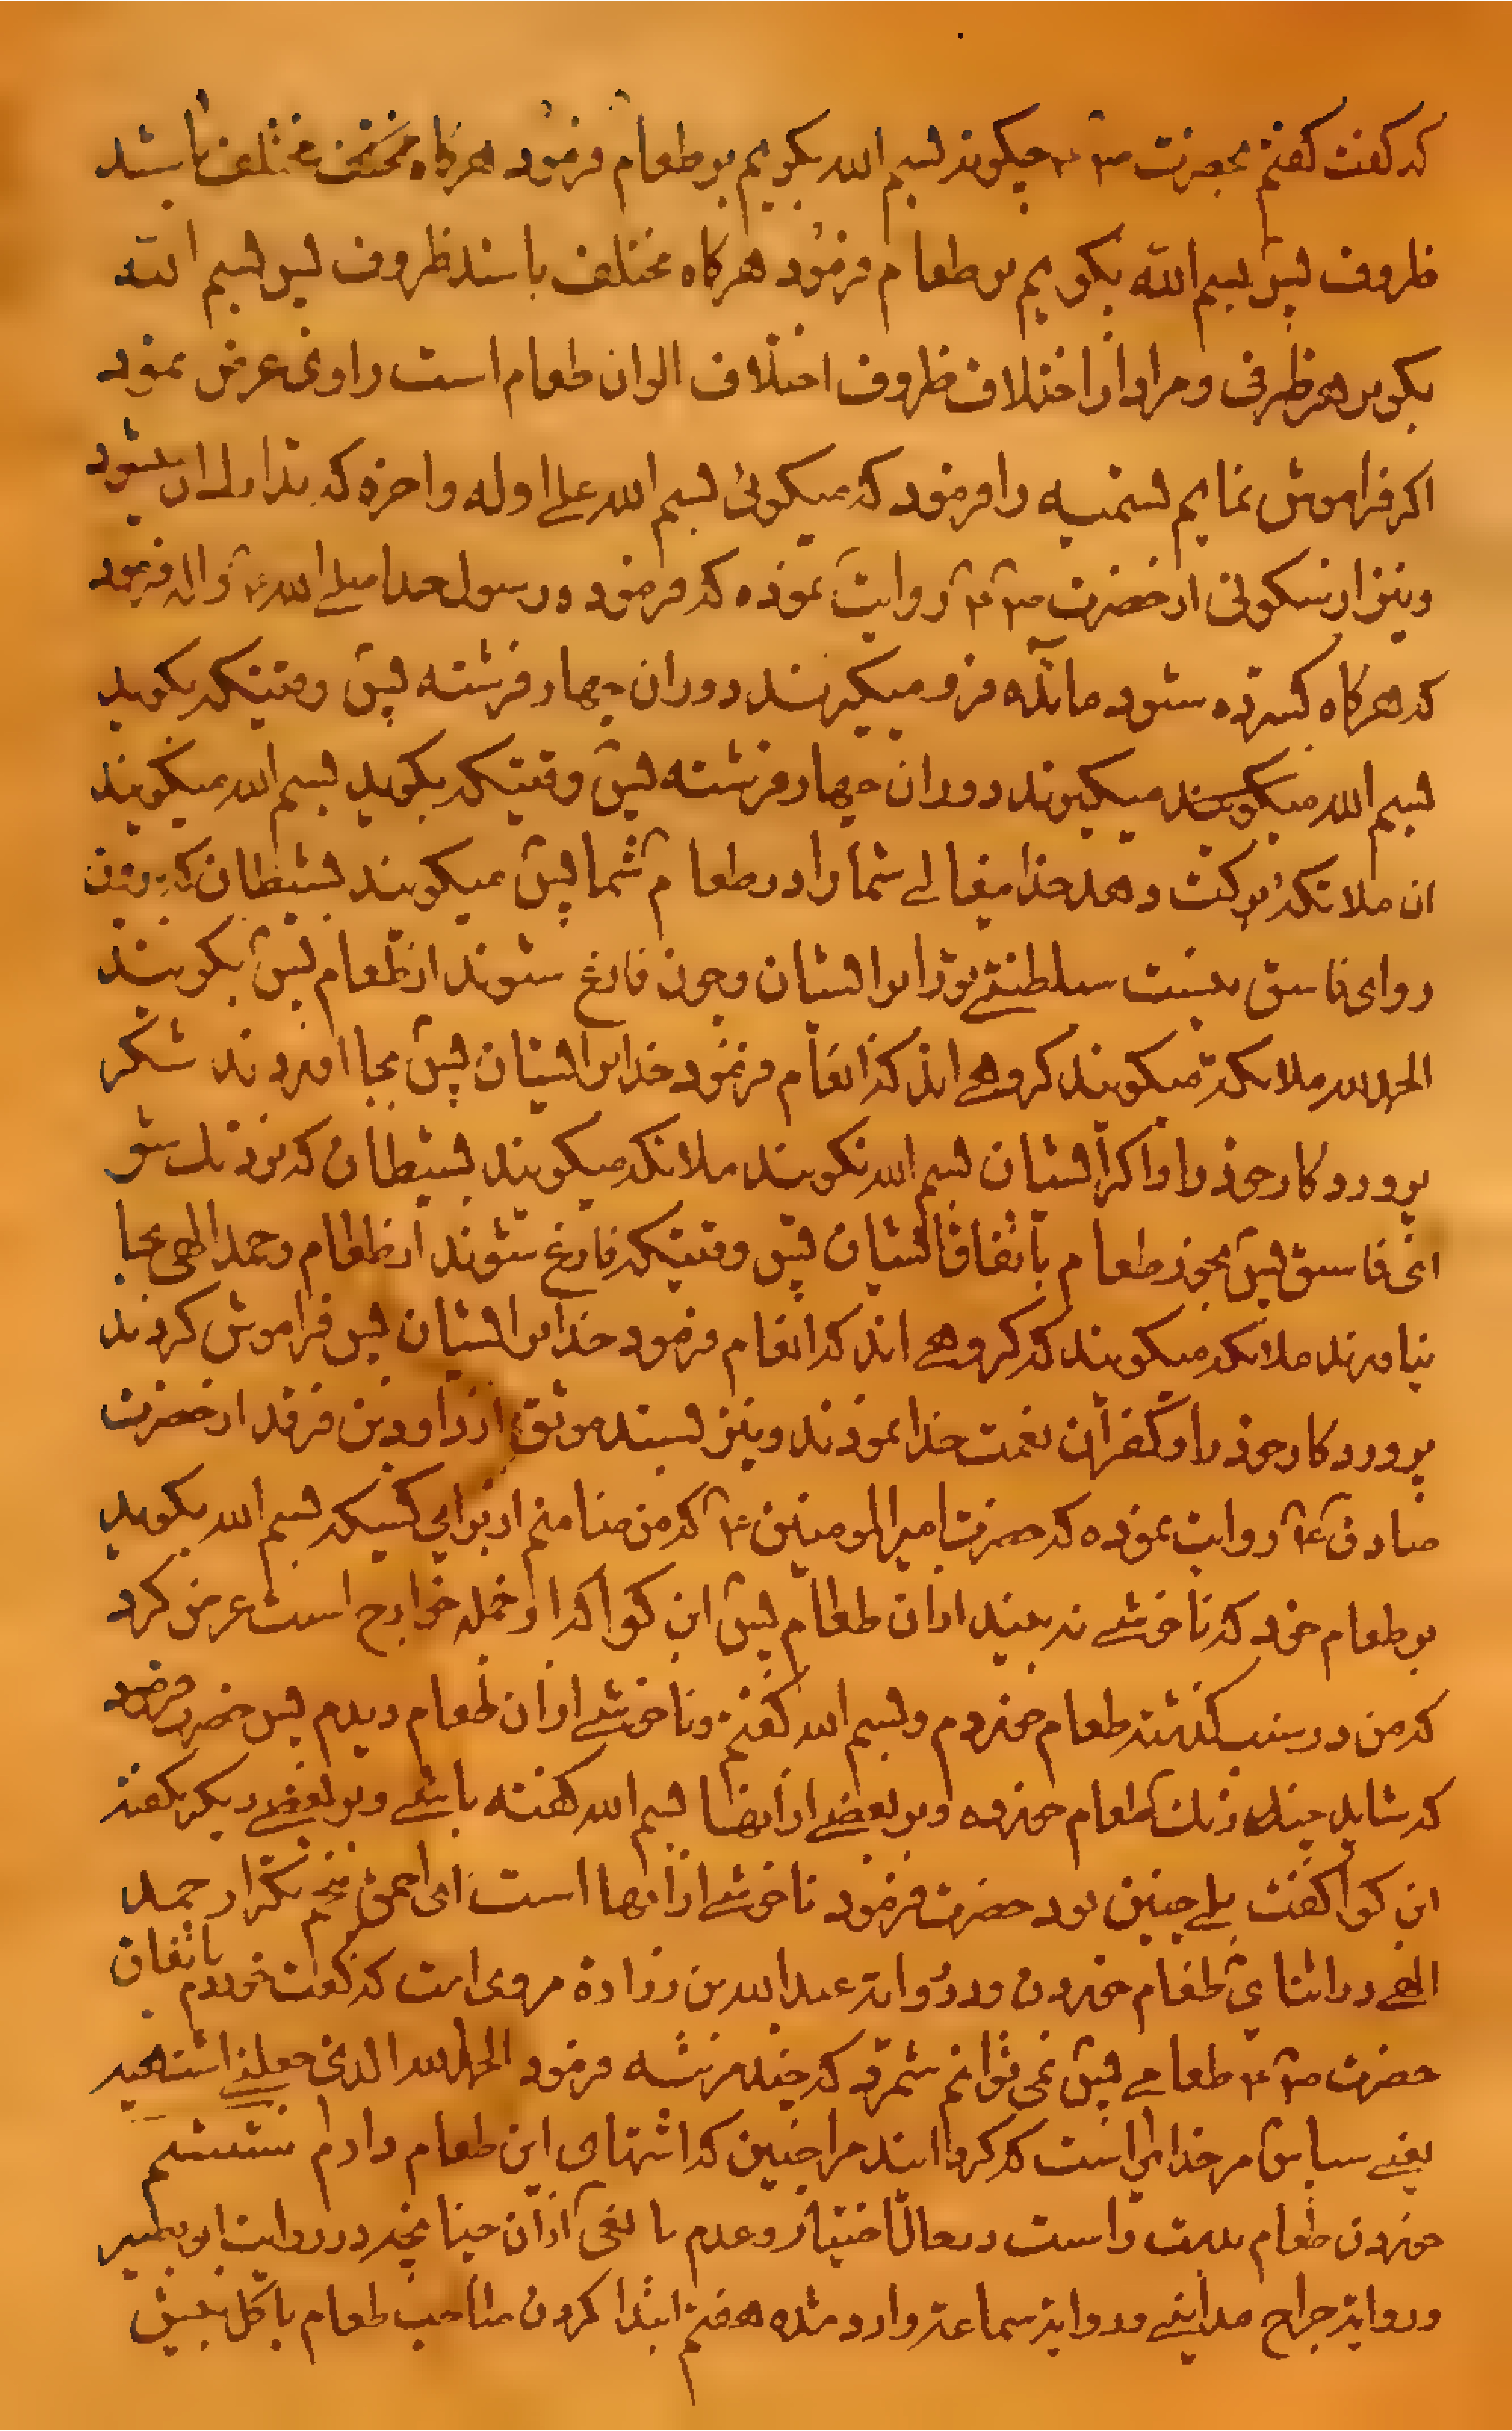 که کفت کفتم بحضرت ص۴ ع۴ چکونه بسم الله بکویم بر طعام فرمود هرکاه مختلف باشد
ظروف پس بسم الله بکویم بر طعام فرمود هرکاه مختلف باشند ظروف پس بسم الله
بکو بر هر ظرفی و مراد از اختلاف ظروف اختلاف الوان طعام است راوی عرض نمود
اکر فراموش نمایم تسمیه را فرمود که میکوئی بسم الله علی اوله واخره که تدارک ان میشود
و نیز از سکونی از حضرت ص۴ ع۴ روایت نموده که فرموده رسول خدا صلی الله ع۴ واله فرمود
که هرکاه کسترده شود مائده فرو میکیرند دور ان چهار فرشته پس وقتیکه بکوید
بسم الله میکویند میکیرند دور ان چهار فرشته پس وقتیکه بکوید بسم الله میکویند
ان ملائکه برکت دهد خدا متعالی شما را در طعام شما پس میکویند بشیطان که بیرون
رو ای فاسق نیست سلطنتی تو را بر ایشان و چون فارغ شوند از طعام پس بکویند
الحمد لله ملائکه میکویند کروهی اند که انعام فرمود خدا بر ایشان پس بجا اوردند شکر
پروردکار خود را و اکر ایشان بسم الله نکویند ملائکه میکویند بشیطان که نزدیک شو
ای فاسق پس بخور طعام باتفاق ایشان پس وقتیکه فارغ شوند از طعام و حمد الهی بجا
نیاورند ملائکه میکویند که کروهی اند که انعام فرمود خدا بر ایشان پس فراموش کردند
پروردکار خود را و کفران نعمت خدا نمودند و نیز بسند موثق از داود بن فرقد از حضرت
صادق ع۴ روایت نموده که حضرت امیر المومنین ع۴ که من ضامنم از برای کسیکه بسم الله بکوید
بر طعام خود که ناخوشی نه بیند از ان طعام پس ابن کوا که از جمله خوارج است عرض کرد
که من در شب کذشته طعام خوردم و بسم الله کفتم و ناخوشی از ان طعام دیدم پس حضرت فرمود
که شاید چند رنک طعام خورده و بر بعضی از انها بسم الله کفته باشی و بر بعضی دیکر نکفته
ابن کوا کفت بلی چنین بود حضرت فرمود ناخوشی از انها است ای احمق پنجم تکرار حمد
الهی در اثنای طعام خوردن و در روایة عبد الله بن زراره مروی است که کفت خوردم باتفاق
حضرت ص۴ ع۴ طعامی پس نمی توانم شمرد که چند مرتبه فرمود الحمد لله الذی جعلنی اشتهیه
یعنی سپاس مر خدایرا است که کردانید مرا چنین که اشتهای این طعام دارم ششم
خوردن طعام بدست راست در حال اختیار و عدم مانعی از ان چنانچه در روایت ابو بصیر
و روایة جراح مداینی و روایة سماعة وارد شده هفتم ابتدا کردن صاحب طعام باکل پیش